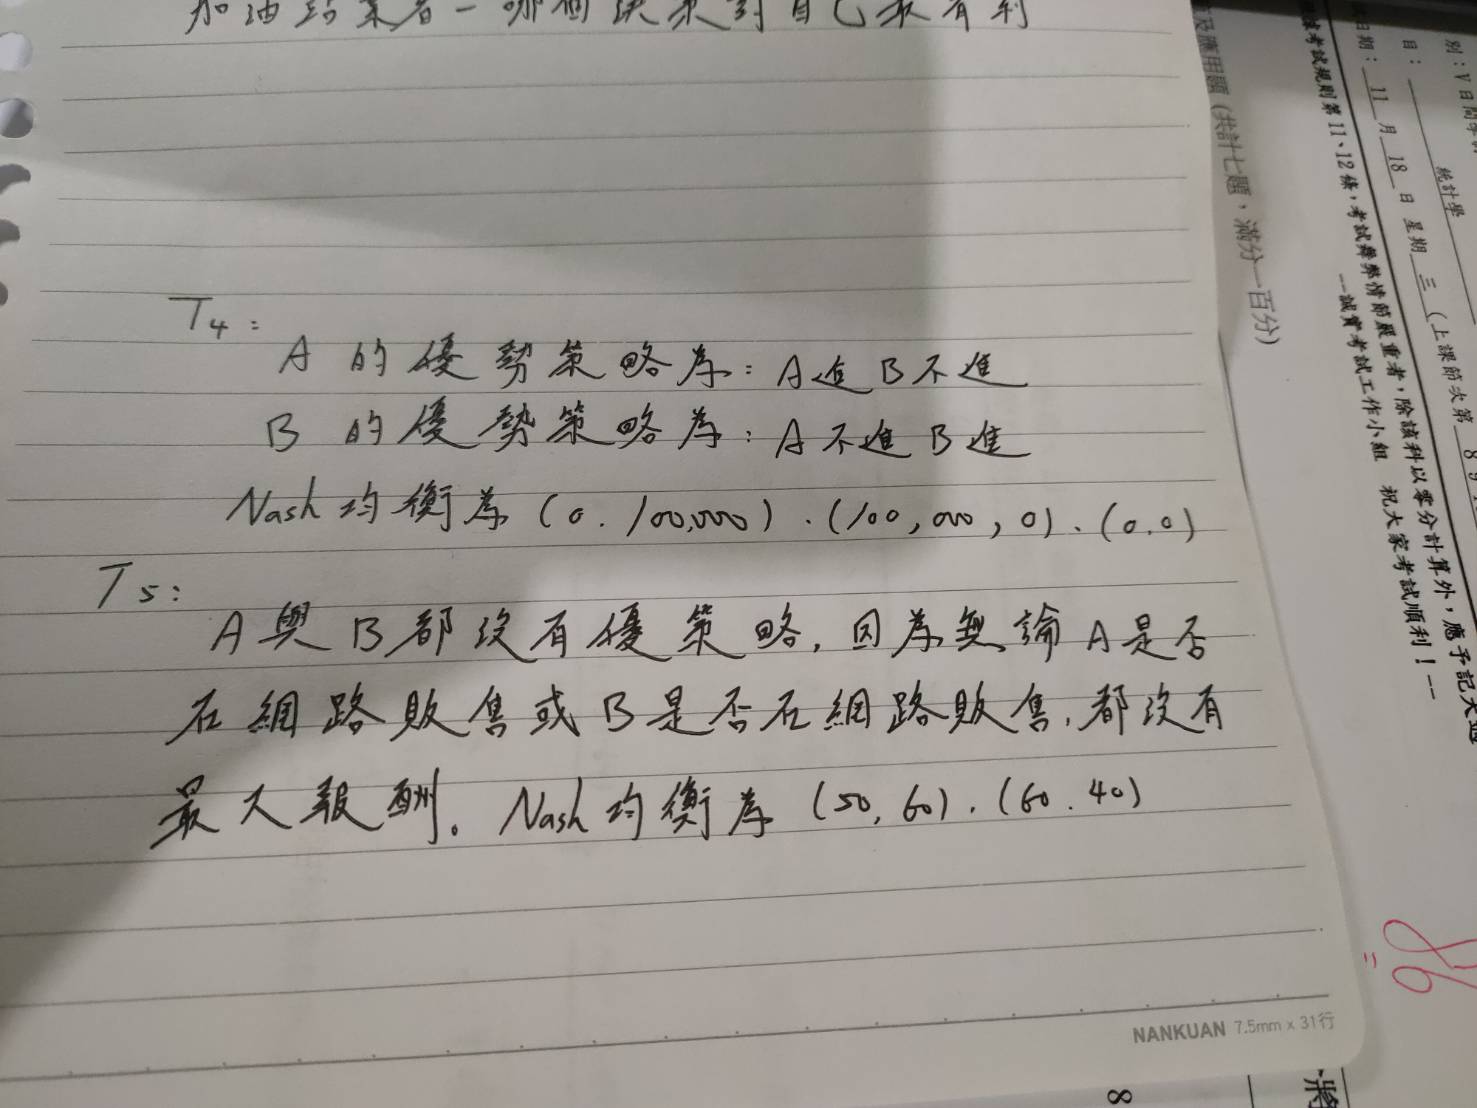 加油站業者一哪個決策對自己最有利
T4:
A的優勢策略為:A進B不進
B的優勢策略為:A不進B進
Nash均衡為(0.100,000).(100,000,0).(0.0)
T5:
A與B都沒有優策略,因為無論A是否
在網路販售或B是否在網路販售,都沒有
最大報酬。Nash均衡為(50,60).(60.40)
NANKUAN 7.5mm x 31行
別:V日間
統計學
目:
日期:11月18日 星期三(上課節次第 8 9
考試規則第11、12條,考試舞弊情節嚴重者,除該科以零分計算外,應予記大過
--誠實考試工作小組 祝大家考試順利!--
及應用題(共計七題,滿分一百分)
98
8
將